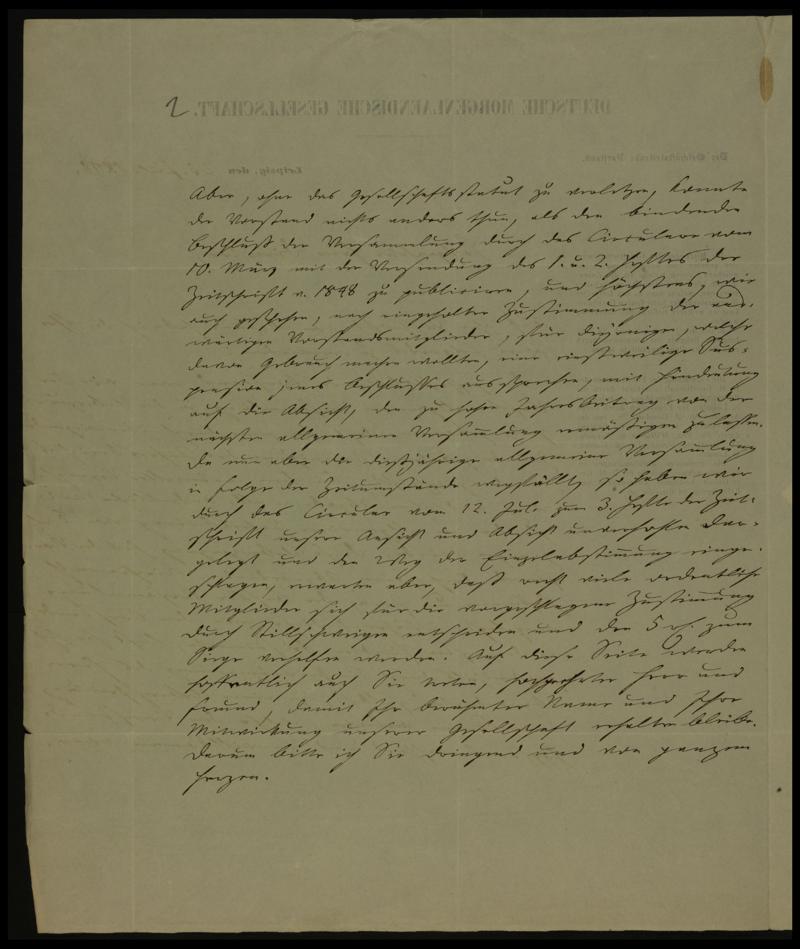 2
DEUTSCHE MORGENLAENDISCHE GESELLSCHAFT.
Leipzig, den
Aber, ohne das Gesellschaftsstatut zu verletzen, konnte
der Vorstand nichts anders thun, als den bindenden
Beschluß der Versammlung durch das Circulare vom
10. März mit der Versendung des 1. u. 2. Heftes der
Zeitschrift v. 1848 zu publiciren, und höchstens, wie
auch geschehen, nach eingeholter Zustimmung der aus-
wärtigen Vorstandsmitglieder, für diejenigen, welche
davon Gebrauch machen wollten, eine einstweilige Sus-
pension jenes Beschlusses aussprechen, mit Hindeutung
auf die Absicht, den zu hohen Jahresbeitrag von der
nächsten allgemeinen Versammlung ermäßigen zu lassen.
Da nun aber die dießjährige allgemeine Versammlung
in Folge der Zeitumstände wegfällt, so haben wir
durch das Circular vom 12. Jul. zum 3. Hefte der Zeit-
schrift unsere Ansicht und Absicht unverhohlen dar-
gelegt und den Weg der Einzelabstimmung einge-
schlagen, erwarten aber, daß recht viele ordentliche
Mitglieder sich für die vorgeschlagene Zustimmung
durch Stillschweigen entscheiden und den 5 rf. zum
Siege verhelfen werden. Auf diese Seite werden
hoffentlich auch Sie treten, hochgeehrter Herr und
Freund, damit Ihr berühmter Name und Ihre
Mitwirkung unserer Gesellschaft erhalten bleibe.
Darum bitte ich Sie dringend und von ganzem
Herzen.